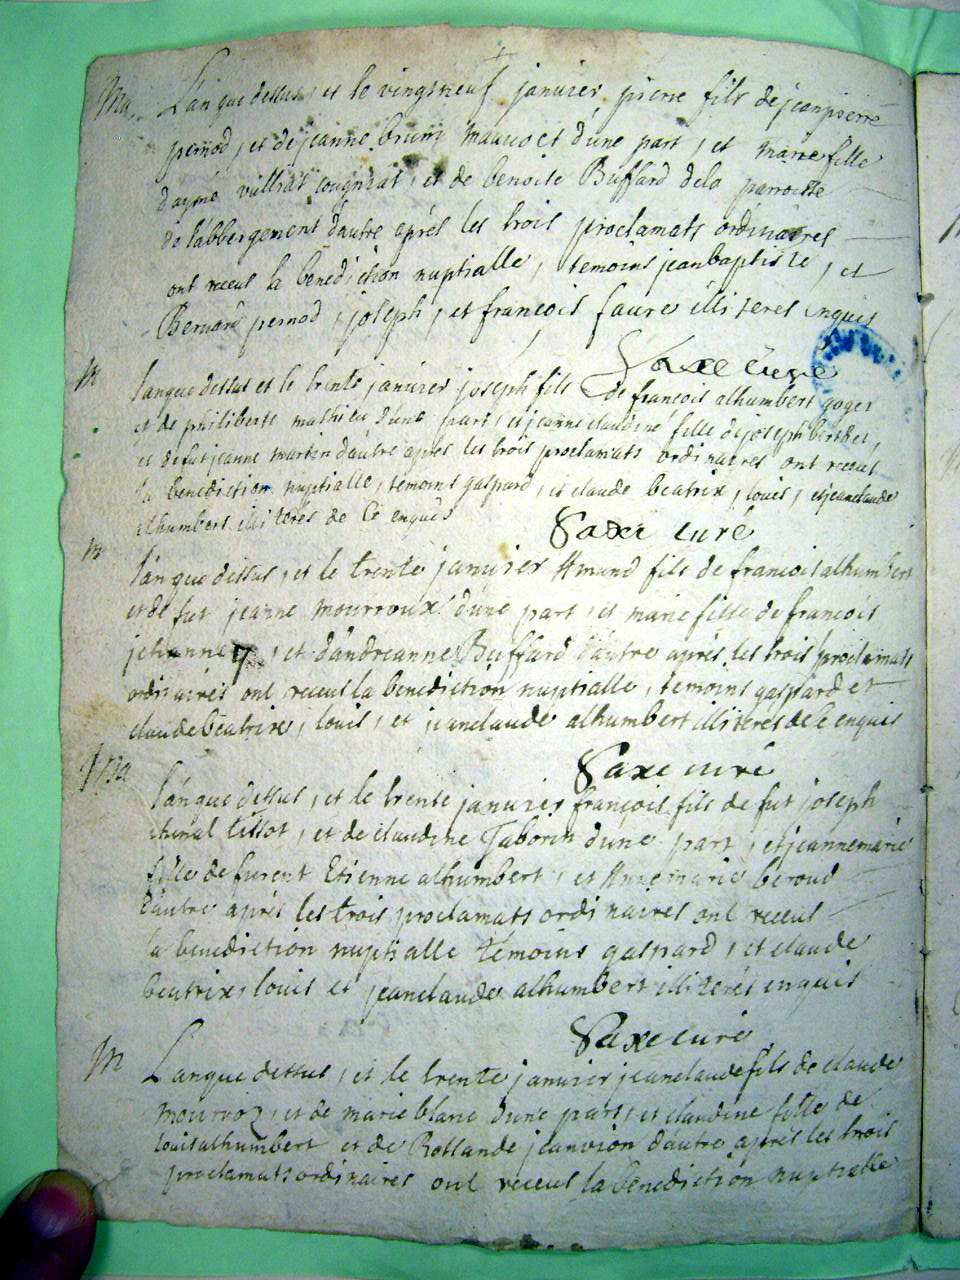 Ma. L'an que dessus, et le vingt neuf janvier pierre fils de jeanpierre
pernod, et de jeanne brun d'une part, et marie fille
d'aymé cougniat, et de benoite Buffard de la parroisse
de l'abbergement d'autre après les trois proclamats ordinaires
ont receus la benediction nuptialle, temoins jeanbaptiste, et
Bernard pernod, joseph, et françois faure illiteres enquis
Saxe curé
M lan que dessus et le trente janvier joseph fils de francois alhumbert goget
et de philiberte mathieu d'une part, et jeanne claudine fille de joseph berthet,
et de fut jeanne martin d'autre après les trois proclamats ordinaires ont receus
la benediction nuptialle, temoins gaspard, et claude beatrix, louis, et jeanclaude
alhumbert illiteres de ce enquis
Saxe curé
M lan que dessus, et le trente janvier Amand fils de francois alhumbert
et de fut jeanne mourroux d'une part, et marie fille de francois
et d'andreanne Buffard d'autre après les trois proclamats
ordinaires ont receus la benediction nuptialle, temoins gaspard et
claude beatrix, louis, et jeanclaude alhumbert illiteres de ce enquis
Saxe curé
lan que dessus, et le trente janvier françois fils de fut joseph
tissot, et de claudine Taborin d'une part, et jeannemarie
fille de furent Etienne alhumbert, et Annemarie beroud
d'autre après les trois proclamats ordinaires ont receus
la benediction nuptialle témoins gaspard, et claude
beatrix, louis et jeanclaude alhumbert illiterés enquis
Saxe curé
M L'an que dessus, et le trente janvier jeanclaude fils de claude
mourroz, et de marie blanc d'une part, et claudine fille de
louis alhumbert et de Rollande janvion d'autre après les trois
proclamats ordinaires ont receus la benediction nuptialle